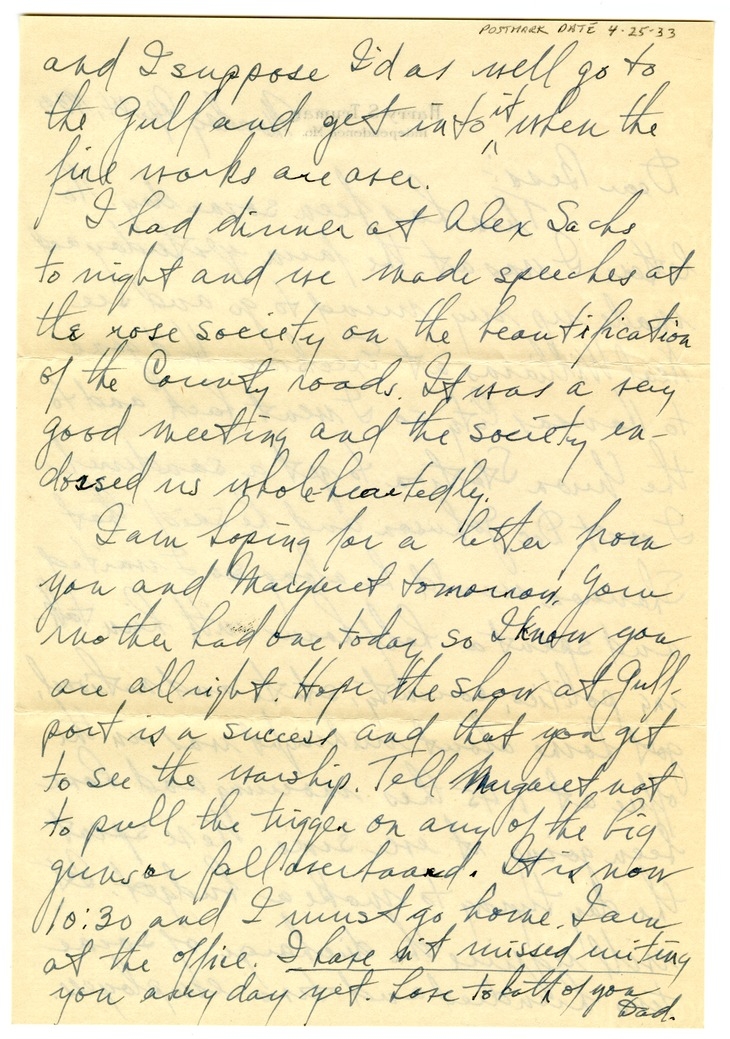 POSTMARK DATE 4-25-33
and I suppose I'd as well go to
the Gulf and get into it when the
fire works are over.
I had dinner at Alex Sachs
to night and we made speeches at
the rose society on the beautification
of the County roads. It was a very
good meeting and the society en-
dorsed us whole heartedly.
I am hoping for a letter from
you and Margaret tomorrow. Your
mother had one today so I know you
are allright. Hope the show at Gulf-
port is a success and that you get
to see the warship. Tell Margaret not
to pull the trigger on any of the big
guns or fall overboard. It is now
10:30 and I must go home. I am
at the office. I have n't missed writing
you any day yet. Love to both of you
Dad.